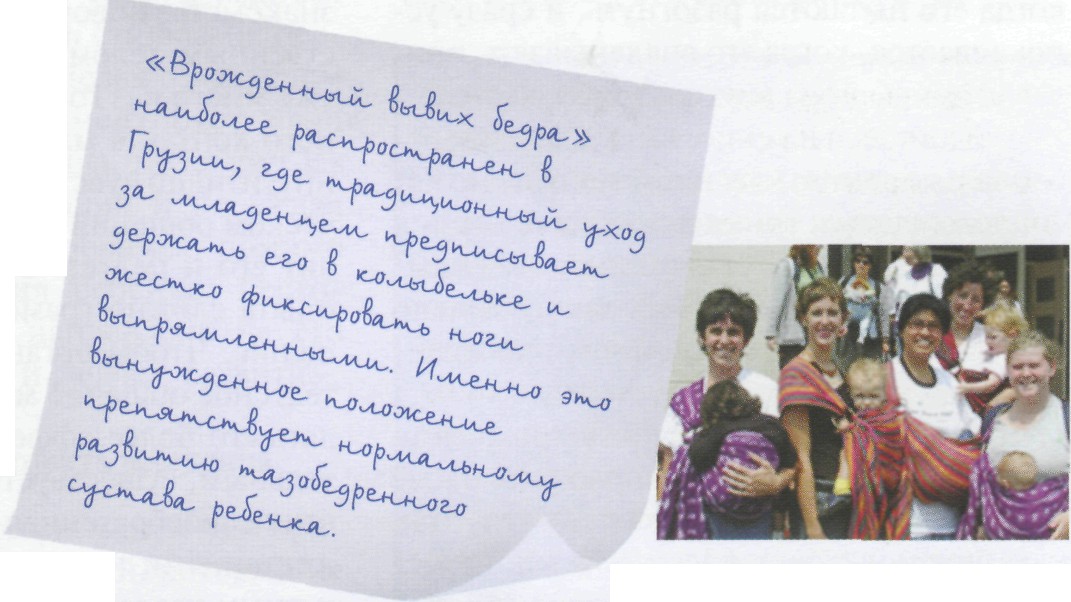 «Врожденный вывих бедра»
наиболее распространен в
Грузии, где традиционный уход
за младенцем предписывает
держать его в колыбельке и
жестко фиксировать ноги
выпрямленными. Именно это
вынужденное положение
препятствует нормальному
развитию тазобедренного
сустава ребенка.